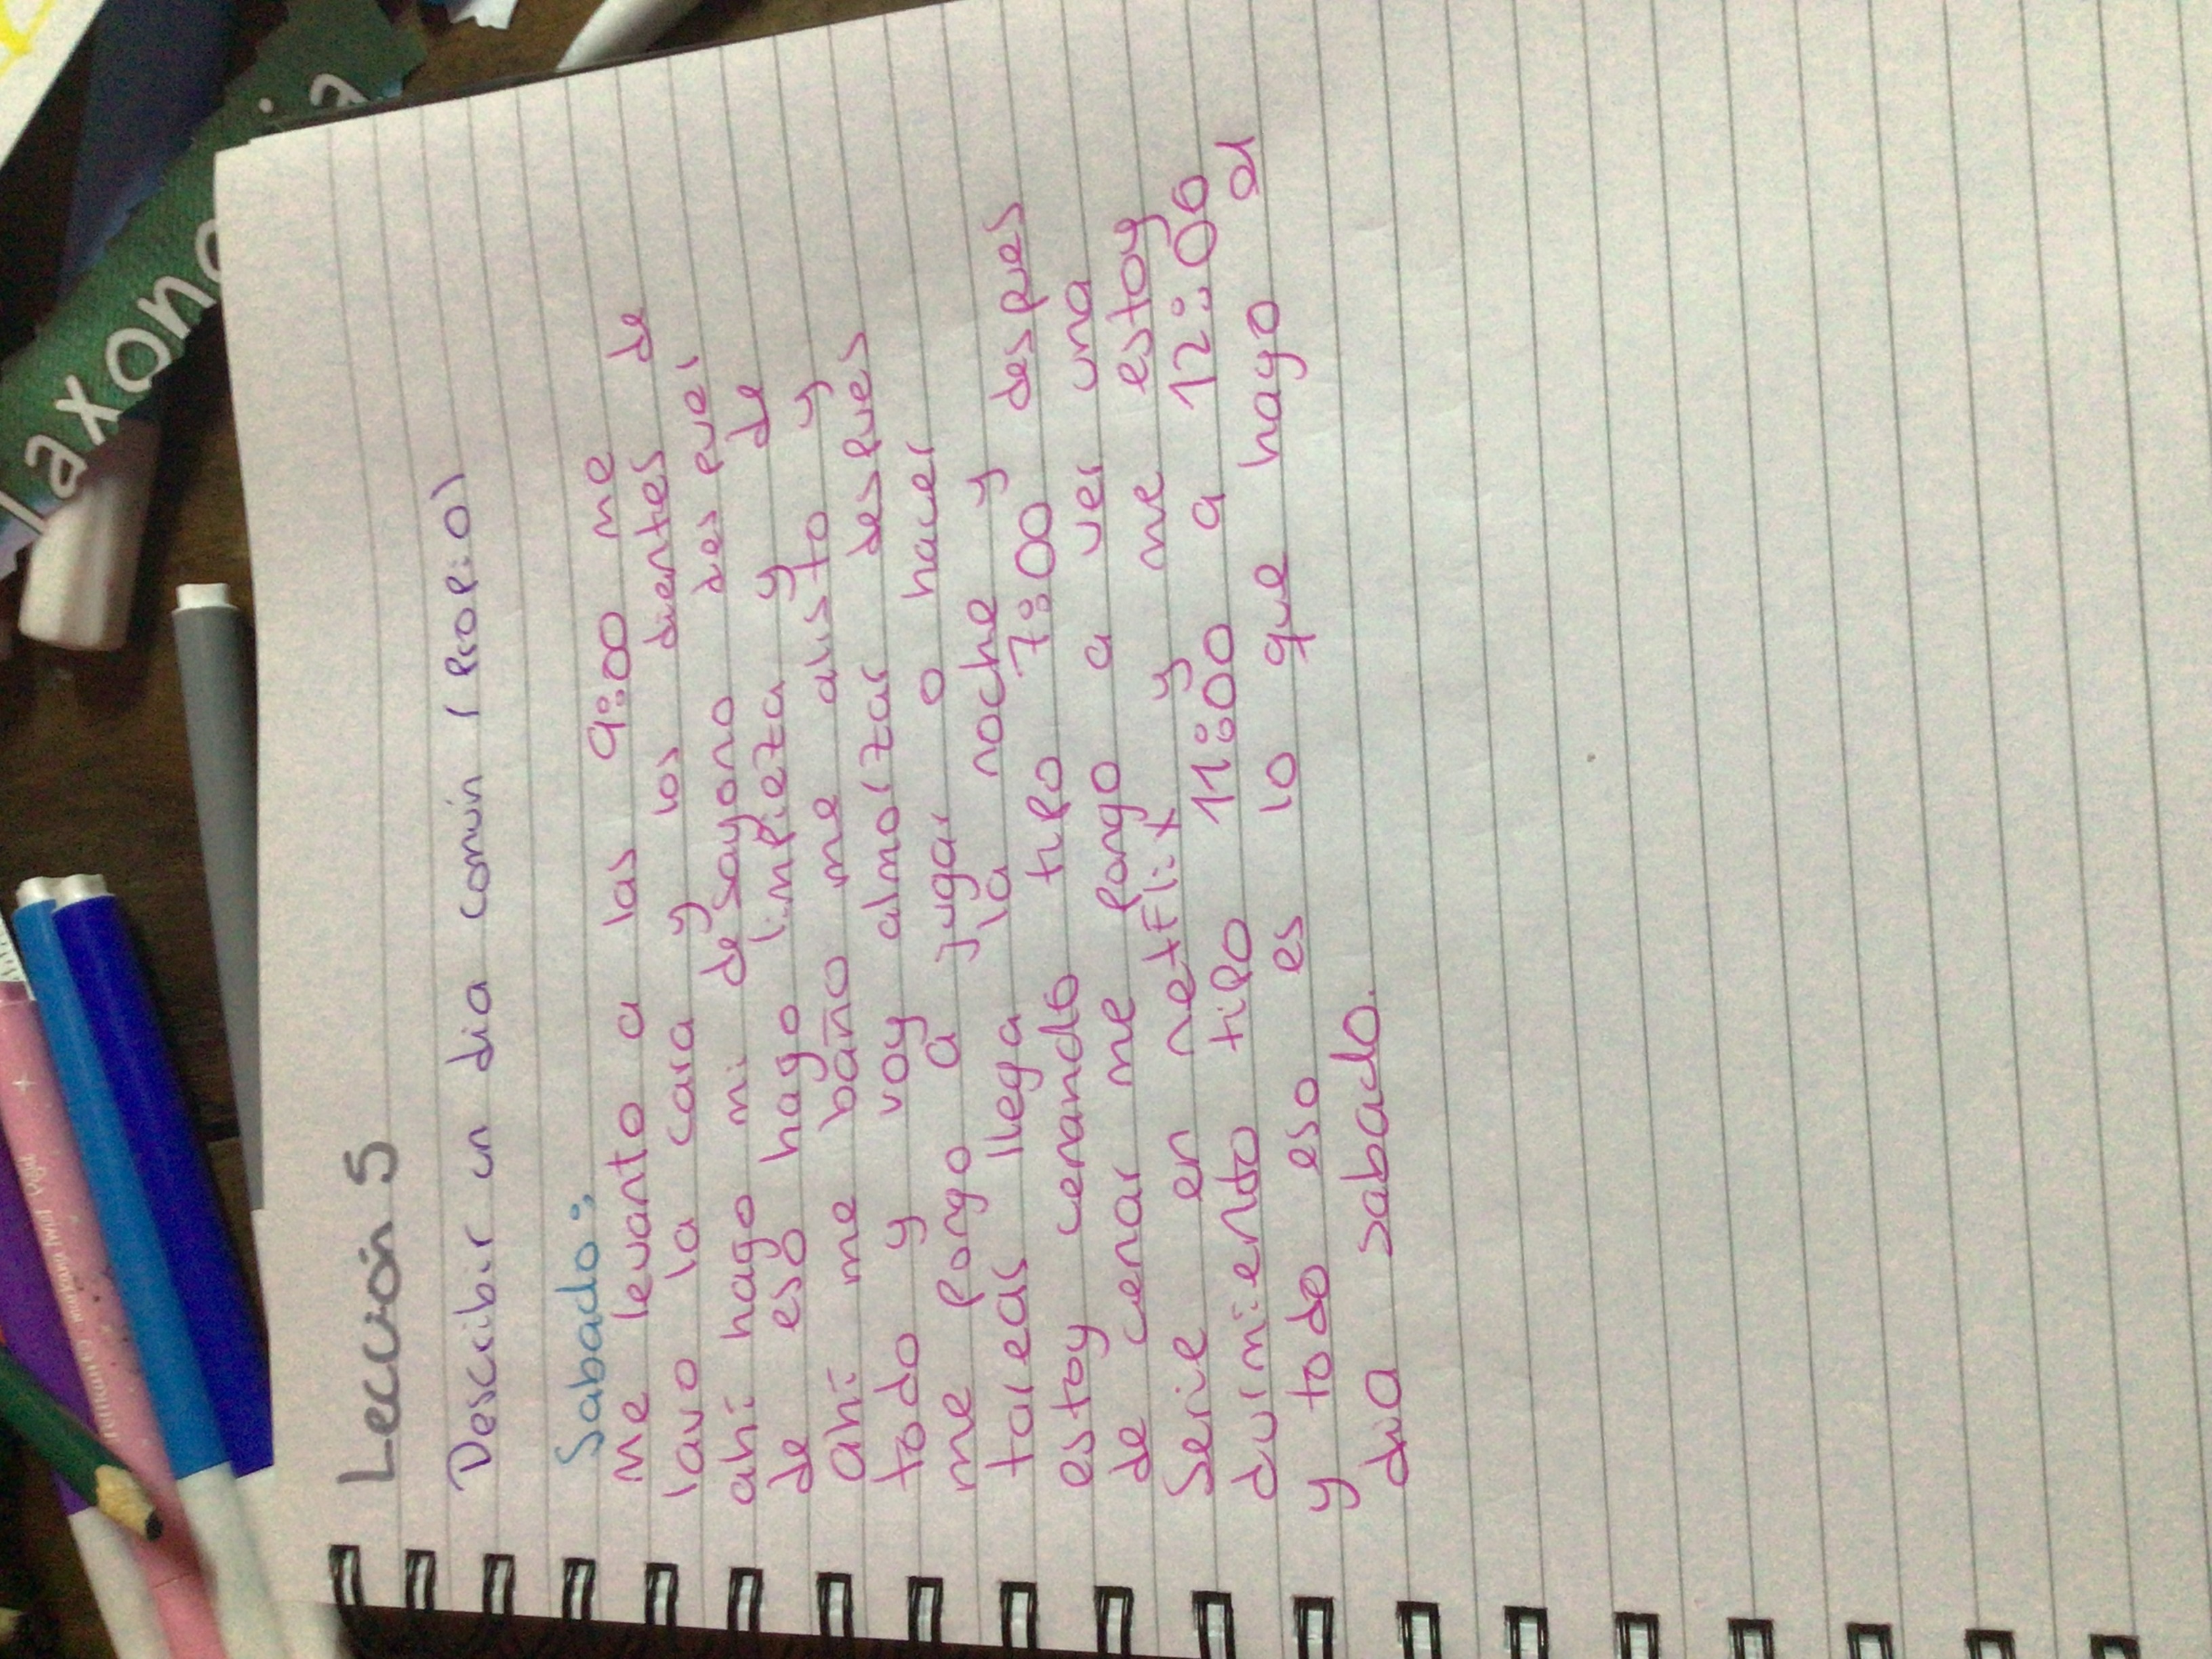 Lección 5
Describir un dia común (propio)
Sabado:
me levanto a las 9:00 me
lavo la cara y los dientes de
ahí hago mi desayuno despues
de eso hago limpieza y de
ahí me baño me alisto y
todo y voy almorzar despues
me pongo a jugar o hacer
tareas llega la noche y
estoy cenando tipo 7:00 despues
de cenar me pongo a ver una
Serie en netflix y me estoy
durmiendo tipo 11:00 a 12:00
y todo eso es lo que hago el
dia sabado.
laxono